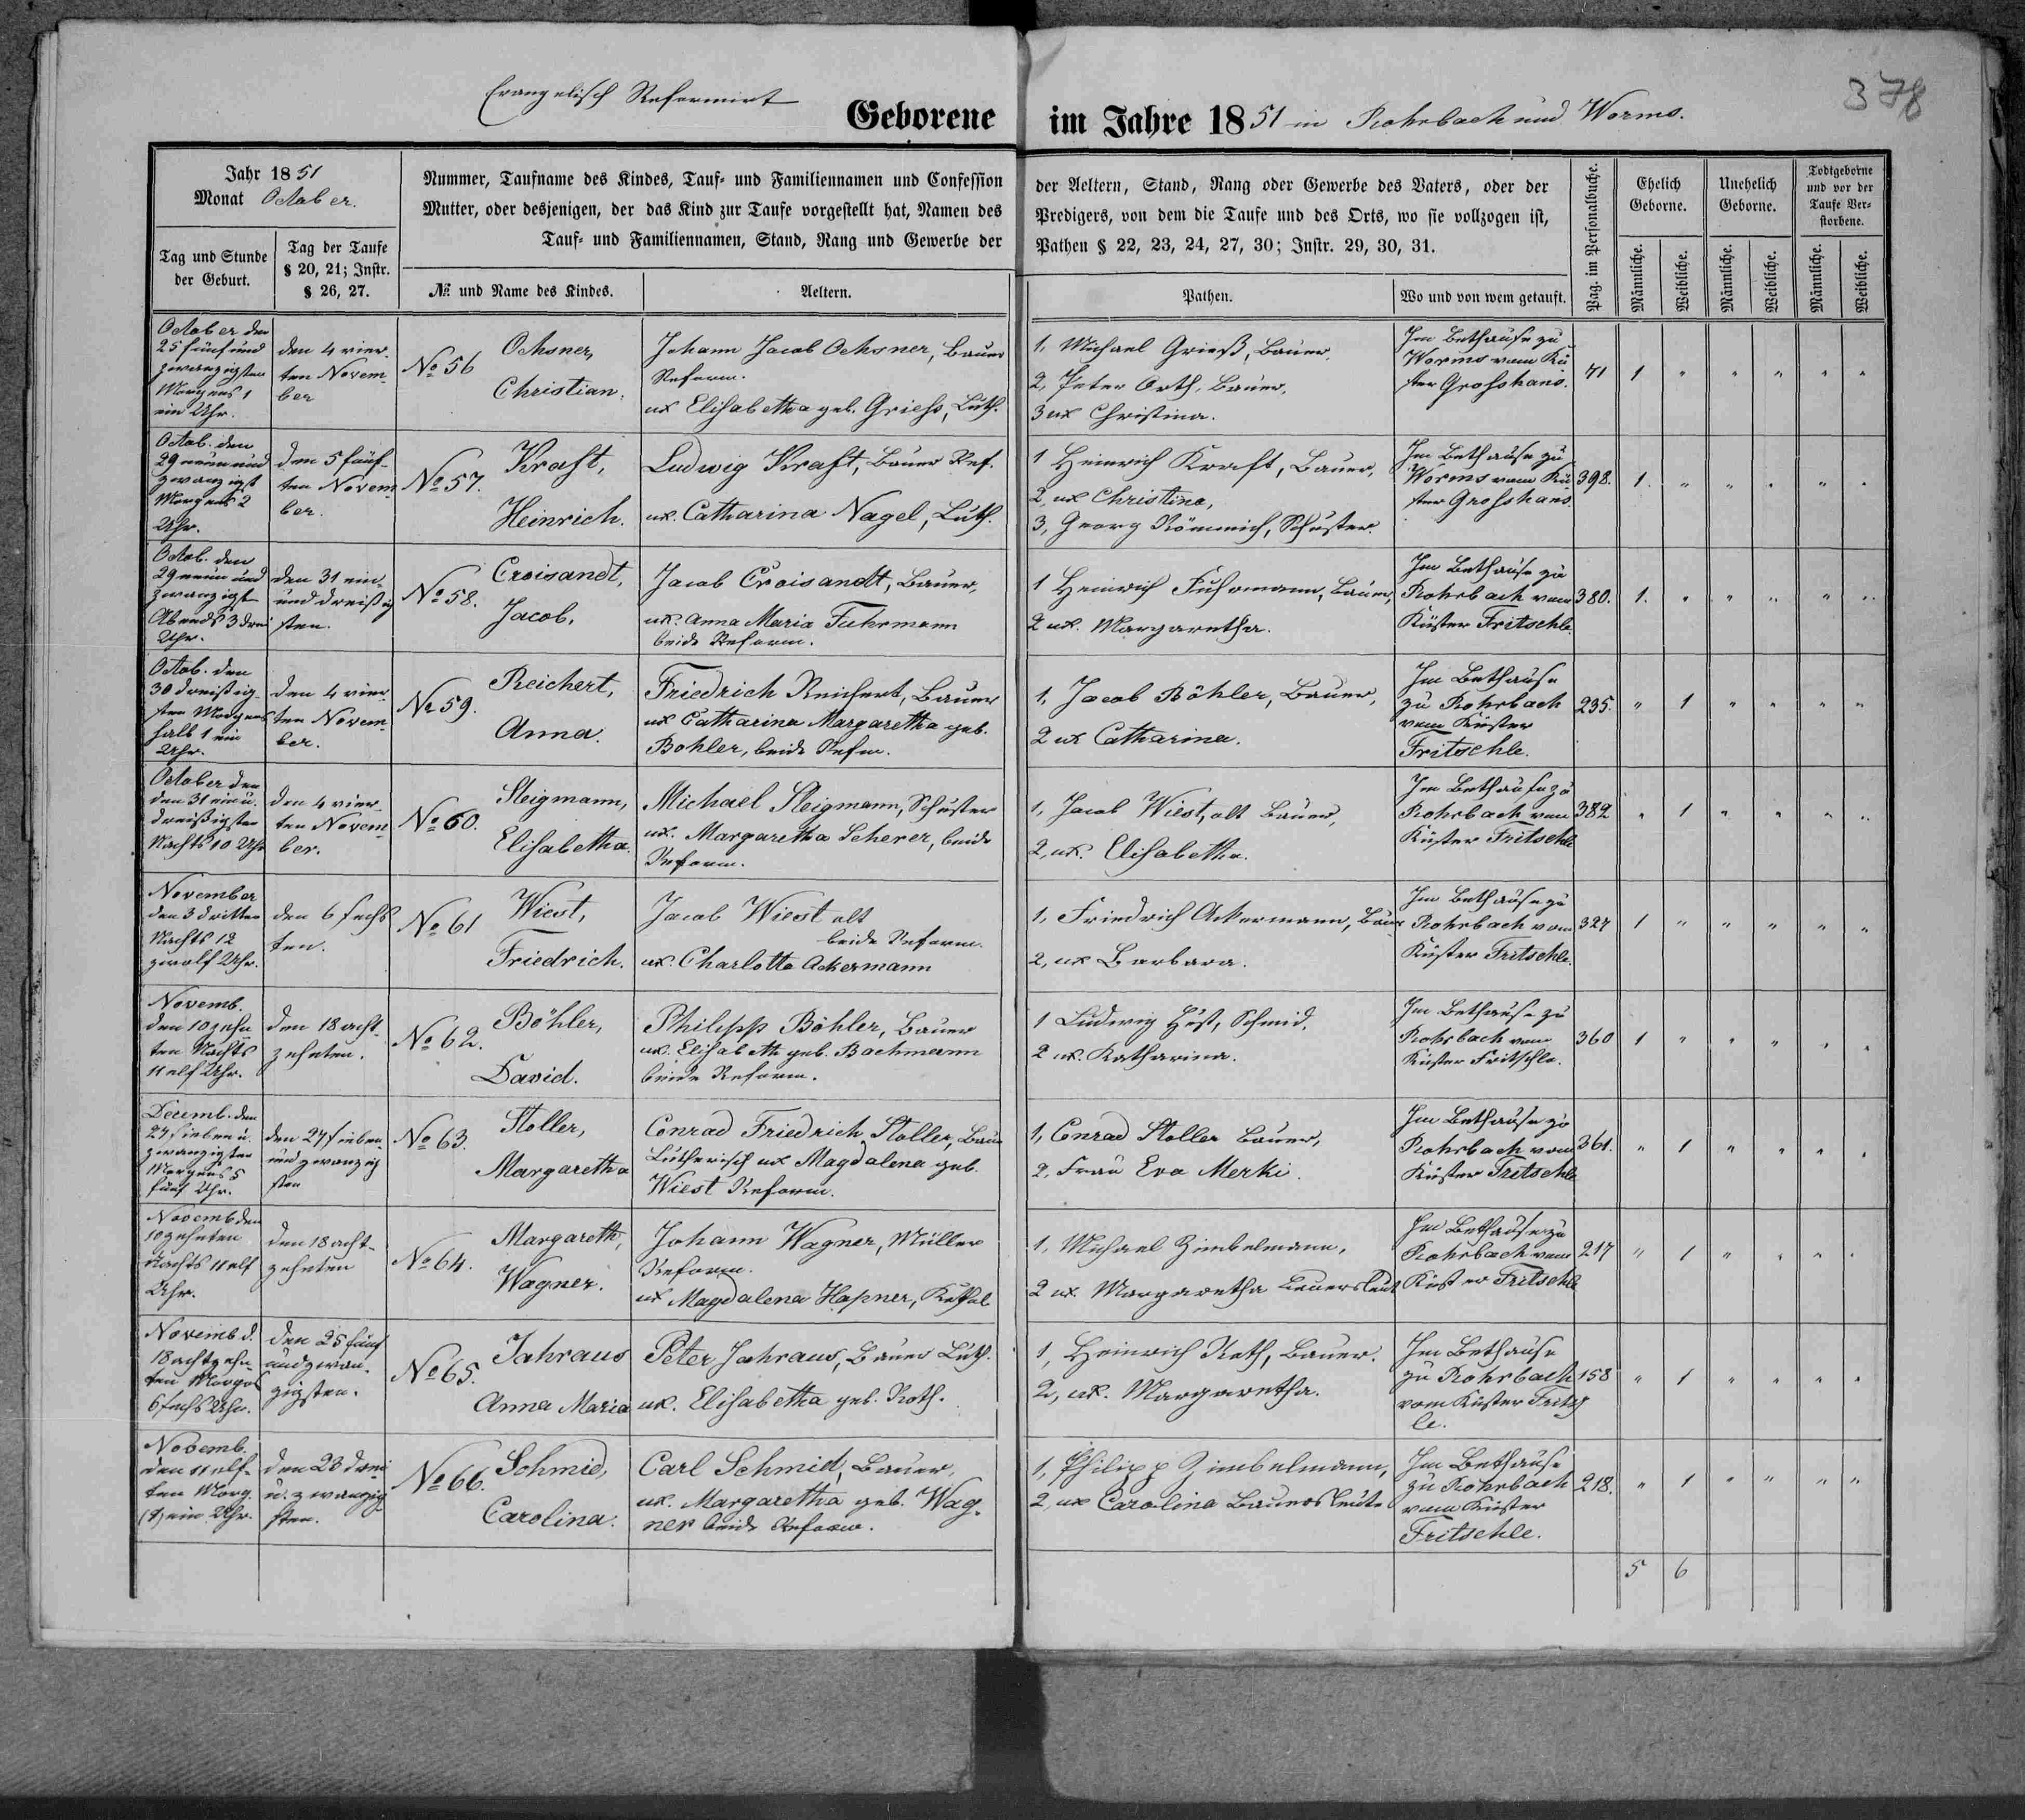 Evangelisch Reformirt
Geborene im Jahre 1851 in Rohrbach und Worms.
378
Jahr 1851
Monat October.
Tag und Stunde
der Geburt.
Tag der Taufe
§ 20, 21; Instr.
§ 26, 27.
Nummer, Taufname des Kindes, Tauf- und Familiennamen und Confession
Mutter, oder desjenigen, der das Kind zur Taufe vorgestellt hat, Namen des
Tauf- und Familiennamen, Stand, Rang und Gewerbe der
№ und Name des Kindes.
Aeltern.
der Aeltern, Stand, Rang oder Gewerbe des Vaters, oder der
Predigers, von dem die Taufe und des Orts, wo sie vollzogen ist,
Pathen § 22, 23, 24, 27, 30; Instr. 29, 30, 31.
Pathen.
Wo und von wem getauft.
Pag. im Personalbuche.
Ehelich
Geborne.
Unehelich
Geborne.
Todtgeborne
und vor der
Taufe Ver-
storbene.
Männliche.
Weibliche.
Männliche.
Weibliche.
Männliche.
Weibliche.
October den
25 fünf und
zwanzigsten
Morgens 1
ein Uhr.
den 4 vier-
ten Novem-
ber
No 56
Ochsner,
Christian.
Johann Jacob Ochsner, Bauer
Reform.
ux Elisabetha geb. Griess, Luth.
1, Michael Grieß, Bauer,
2, Peter Orth, Bauer,
3 ux Christina.
Im Bethause zu
Worms vom Kü-
ster Grosshans.
71
1 " " " " "
Octob. den
29 neun und
zwanzigst
Morgens 2
Uhr.
den 5 fünf-
ten Novem-
ber.
No 57.
Kraft,
Heinrich.
Ludwig Kraft, Bauer Ref.
ux. Catharina Nagel, Luth.
1 Heinrich Kraft, Bauer,
2, ux Christina,
3, Georg Römmich, Schuster.
Im Bethause zu
Worms vom Kü-
ster Grosshans.
398.
1. " " " " "
Octob. den
29 neun und
zwanzigst
Abends 3 drei
Uhr.
den 31 ein-
und dreißig
sten.
No 58.
Croisandt,
Jacob.
Jacob Croisandt, Bauer,
ux. Anna Maria Fuhrmann
beide Reform.
1 Heinrich Fuhrmann, Bauer,
2 ux. Margaretha.
Im Bethause zu
Rohrbach vom
Küster Fritschle.
380.
1. " " " " "
Octob. den
30 dreißig-
sten Morgens
halb 1 ein
Uhr.
den 4 vier-
ten Novem-
ber.
No 59.
Reichert,
Anna.
Friedrich Reichert, Bauer
ux Catharina Margaretha geb.
Bohler, beide Refm.
1, Jacob Böhler, Bauer,
2 ux Catharina.
Im Bethause
zu Rohrbach
vom Küster
Fritschle.
235.
" 1 " " " "
October den
den 31 ein u.
dreißigsten
Nachts 10 Uhr
den 4 vier-
ten Novem-
ber.
No 60.
Steigmann,
Elisabetha.
Michael Steigmann, Schuster
ux. Margaretha Scherer, beide
Reform.
1, Jacob Wiest, alt Bauer,
2, ux. Elisabetha.
Im Bethause zu
Rohrbach vom
Küster Fritschle
382
" 1 " " " "
November
den 3 dritten
Nachts 12
zwolf Uhr.
den 6 sechs
ten.
No 61
Wiest,
Friedrich.
Jacob Wiest alt
beide Reform.
ux. Charlotte Ackermann
1, Friedrich Ackermann, Bauer
2, ux Barbara.
Im Bethause zu
Rohrbach vom
Küster Fritschle.
327
1 " " " " "
Novemb.
den 10 zehn
ten Nachts
11 elf Uhr.
den 18 acht-
zehnten.
No 62.
Böhler,
David.
Philipp Böhler, Bauer
ux. Elisabeth geb. Bachmann
beide Reform.
1 Ludwig Hust, Schmid,
2 ux. Katharina.
Im Bethause zu
Rohrbach vom
Küster Fritschle.
360
1 " " " " "
Decemb. den
27 sieben u.
zwanzigsten
Morgens 5
fünf Uhr.
den 27 sieben
und zwanzig
sten
No 63.
Stoller,
Margaretha
Conrad Friedrich Stoller, Bauer
Lutherisch ux Magdalena geb.
Wiest Reform.
1, Conrad Stoller Bauer,
2, Frau Eva Merki.
Im Bethause zu
Rohrbach vom
Küster Fritschle
361.
" 1 " " " "
Novemb den
10 zehnten
Nachts 11 elf
Uhr.
den 18 acht-
zehnten
No 64.
Margareth,
Wagner.
Johann Wagner, Müller
Reform.
ux Magdalena Hapner, Kathol.
1, Michael Zimbelmann,
2 ux. Margaretha Bauersleut
Im Bethause zu
Rohrbach vom
Küster Fritschle
217
" 1 " " " "
Novemb d.
18 achtzehn-
ten Morgens
6 sechs Uhr.
den 25 fünf
und zwan-
zigsten.
No 65.
Jahraus
Anna Maria
Peter Jahraus, Bauer Luth.
ux. Elisabetha geb. Roth.
1, Heinrich Roth, Bauer.
2, ux. Margaretha.
Im Bethause
zu Rohrbach
vom Küster Fritsch
le.
158
" 1 " " " "
Novemb.
den 11 elf-
ten Morg.
(1) ein Uhr.
den 23 drei
u. zwanzig
sten.
No 66.
Schmid,
Carolina.
Carl Schmid, Bauer,
ux. Margaretha geb. Wag-
ner beide Reform.
1, Philipp Zimbelmann,
2, ux Carolina Bauersleute
Im Bethause
zu Rohrbach
vom Küster
Fritschle.
218.
" 1 " " " "
5 6